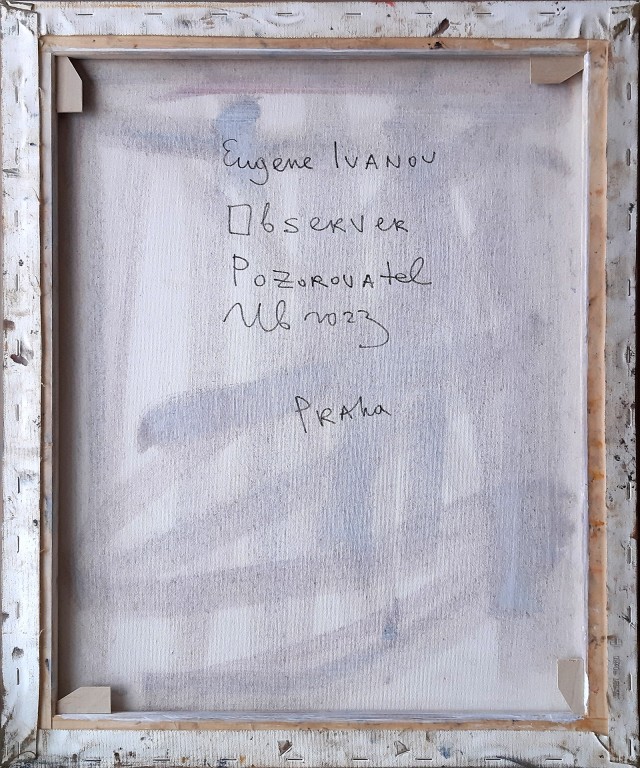 Eugene IVANOV
Observer
Pozorovatel
2023
Praha